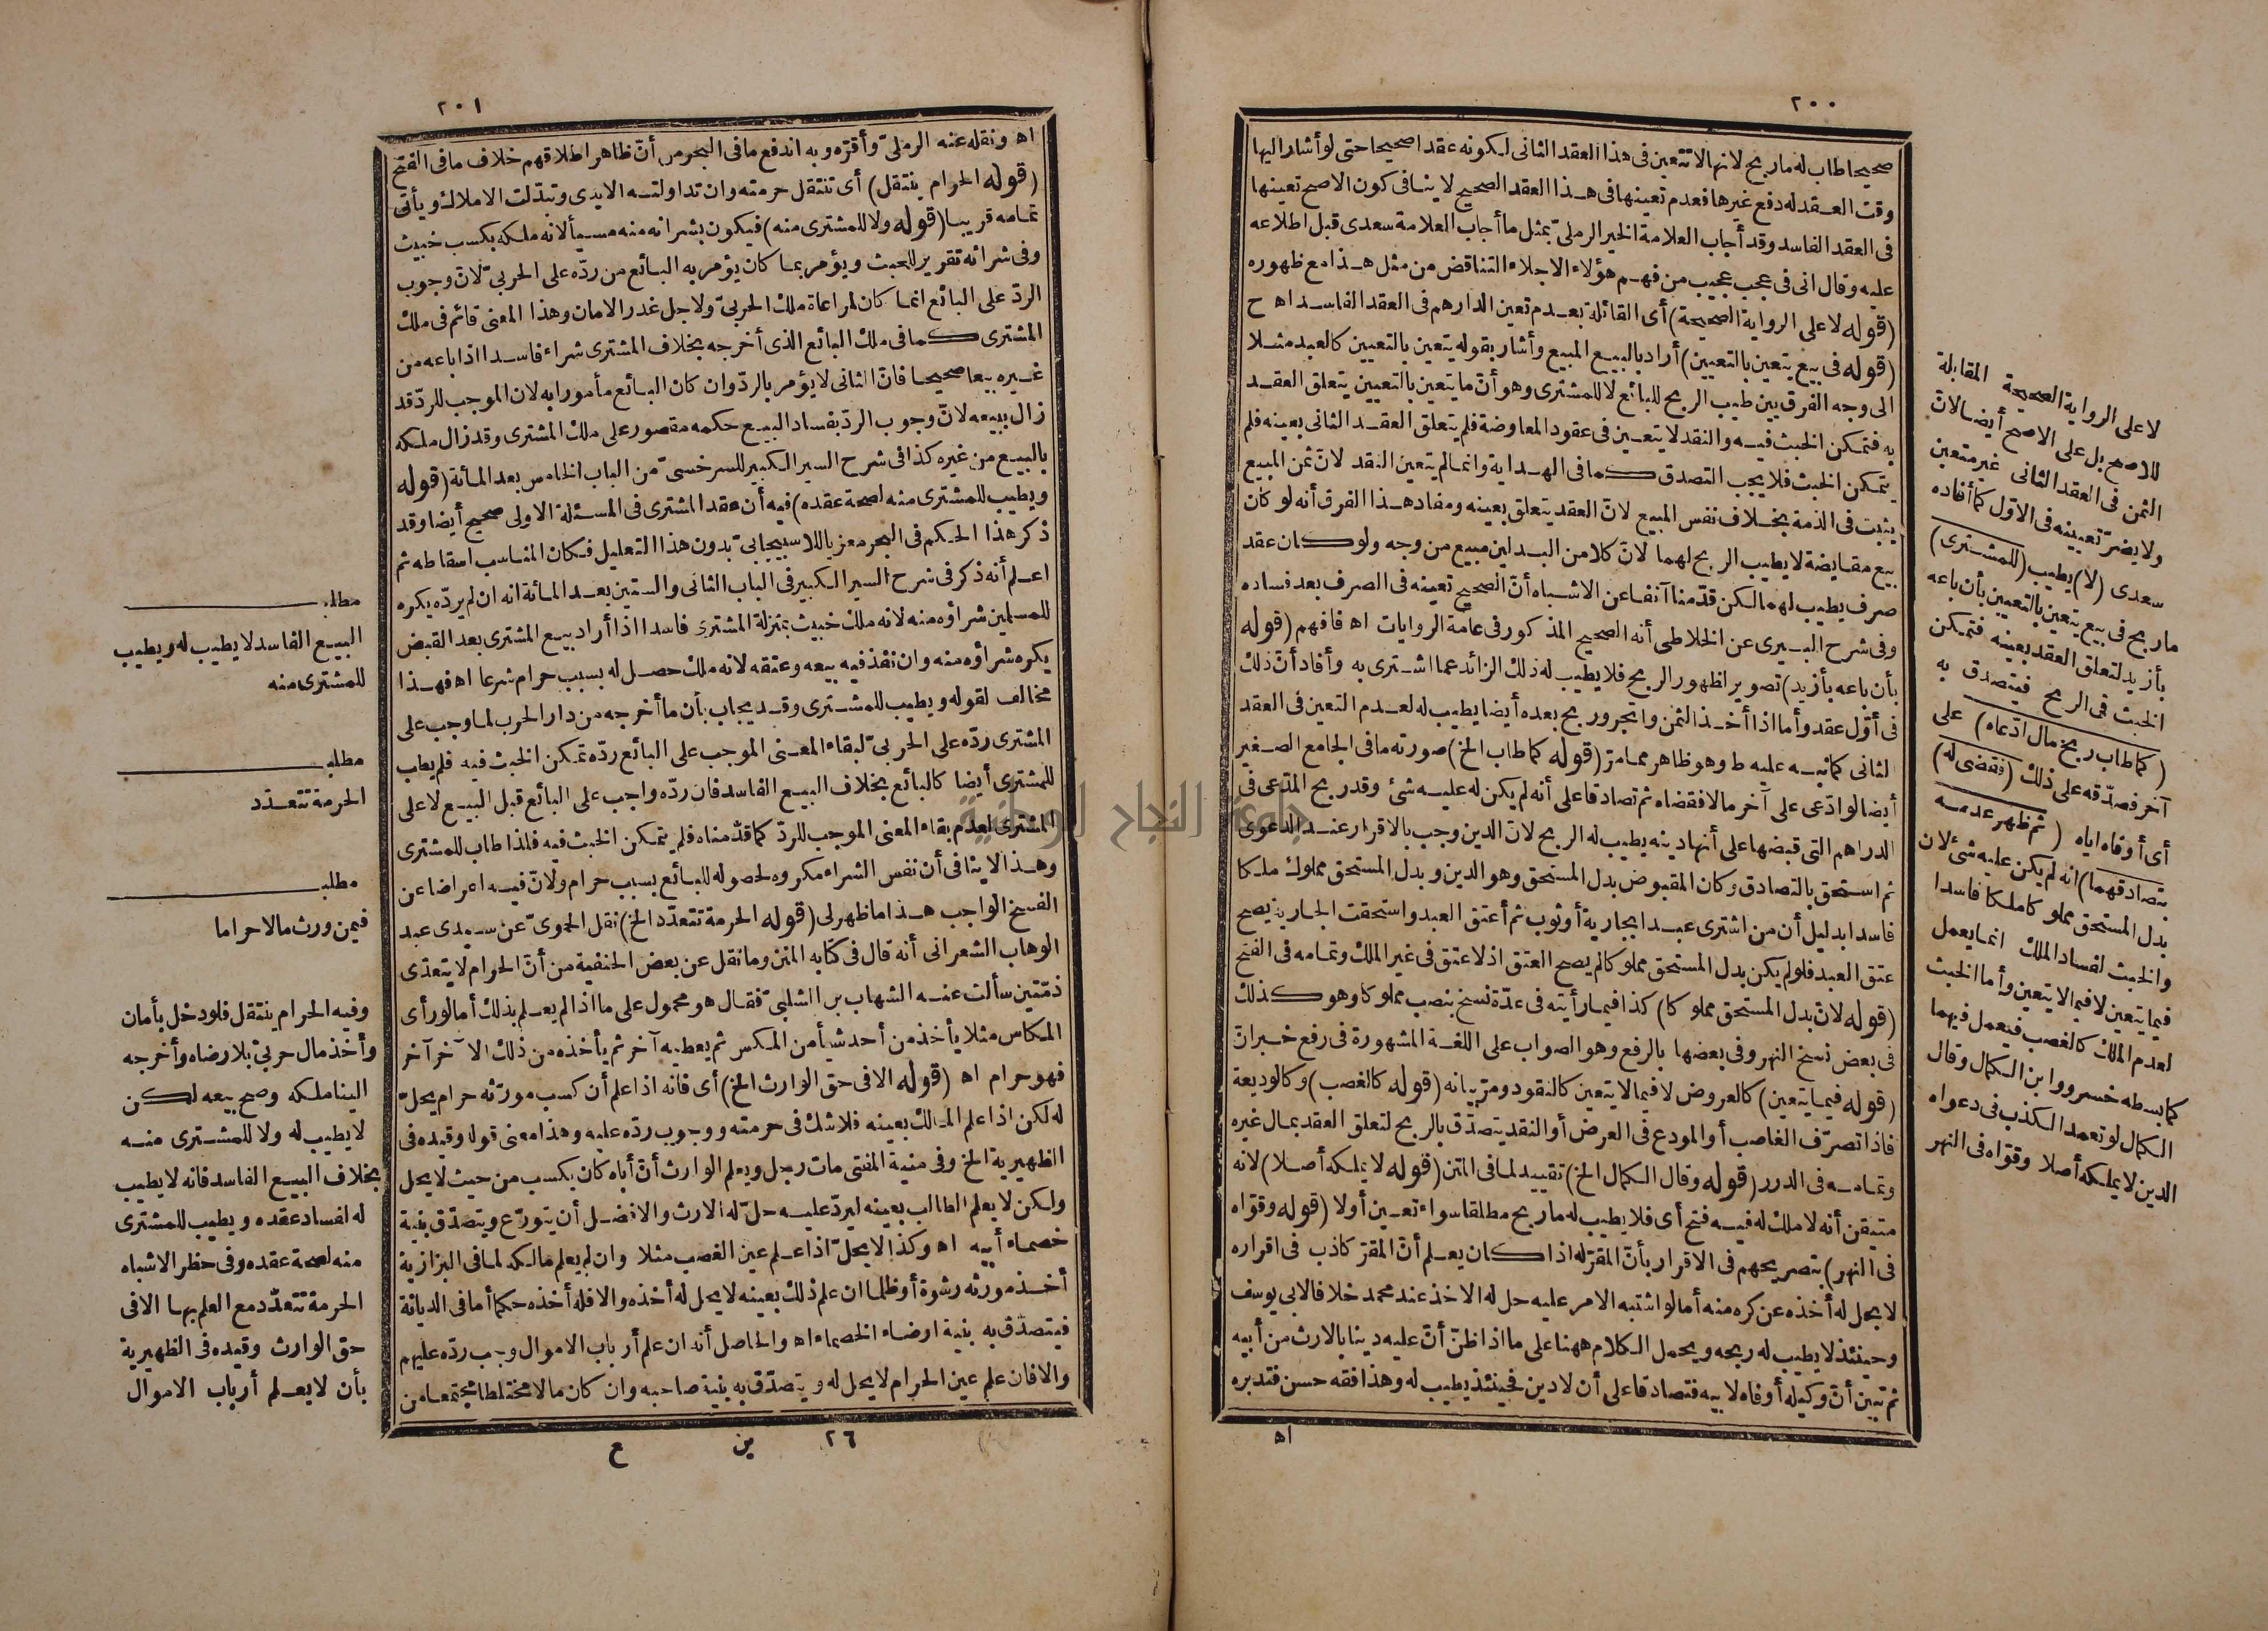 ٢٠٠
صحيحا طاب له ما ربح لانها لا تتعين فى هذا العقد الثانى لكونه عقدا صحيحا حتى لو أشار اليها
وقت العقد له دفع غيرها فعدم تعينها فى هذا العقد الصحيح لا ينافى كون الاصح تعينها
فى العقد الفاسد وقد أجاب العلامة الخير الرملىّ بمثل ما أجاب العلامة سعدى قبل اطلاعه
عليه وقال انى فى عجب عجيب من فهم هؤلاء الاجلاء التناقض من مثل هذا مع ظهوره
(قوله لا على الرواية الصحيحة) أى القائلة بعدم تعين الدارهم فى العقد الفاسد اه ح
(قوله فى بيع يتعين بالتعيين) أراد بالبيع المبيع وأشار بقوله يتعين بالتعيين كالعبد مثلا
الى وجه الفرق بين طيب الربح للبائع لا للمشترى وهو أنّ ما يتعين بالتعيين يتعلق العقد
به فتمكن الخبث فيه والنقد لا يتعين فى عقود المعاوضة فلم يتعلق العقد الثانى بعينه فلم
يتمكن الخبث فلا يجب التصدق كما فى الهداية وانما لم يتعين النقد لانّ ثمن المبيع
يثبت فى الذمة بخلاف نفس المبيع لانّ العقد يتعلق بعينه ومفاد هذا الفرق أنه لو كان
بيع مقايضة لا يطيب الربح لهما لانّ كلا من البدلين مبيع من وجه ولو كان عقد
صرف يطيب لهما لكن قدّمنا آنفا عن الاشباه أنّ الصحيح تعينه فى الصرف بعد فساده
وفى شرح البيرى عن الخلاطى أنه الصحيح المذكور فى عامة الروايات اه فافهم (قوله
بأن باعه بأزيد) تصوير لظهور الربح فلا يطيب له ذلك الزائد عما اشترى به وأفاد أنّ ذلك
فى أوّل عقد وأما اذا أخذ الثمن واتجر وربح بعده أيضا يطيب له لعدم التعين فى العقد
الثانى كما نبه عليه ط وهو ظاهر مما مرّ (قوله كما طاب الخ) صورته ما فى الجامع الصغير
أيضا لو ادّعى على آخر مالا فقضاه ثم تصادقا على أنه لم يكن له عليه شئ وقد ربح المدّعى فى
الدراهم التى قبضها على أنها دينه يطيب له الربح لانّ الدين وجب بالاقرار عند الدعوى
ثم استحق بالتصادق وكان المقبوض بدل المستحق وهو الدين وبدل المستحق مملوك ملكا
فاسدا بدليل أن من اشترى عبدا بجارية أو ثوب ثم أعتق العبد واستحقت الجارية يصح
عتق العبد فلو لم يكن بدل المستحق مملوكا لم يصح العتق اذ لا عتق فى غير الملك وتمامه فى الفتح
(قوله لانّ بدل المستحق مملوكا) كذا فيما رأيته فى عدّة نسخ بنصب مملوكا وهو كذلك
فى بعض نسخ النهر وفى بعضها بالرفع وهو الصواب على اللغة المشهورة فى رفع خبر انّ
(قوله فيما يتعين) كالعروض لا فيما لا يتعين كالنقود ومرّ بيانه (قوله كالغصب) وكالوديعة
فاذا تصرّف الغاصب أو المودع فى العرض أو النقد يتصدّق بالربح لتعلق العقد بمال غيره
وتمامه فى الدرر (قوله وقال الكمال الخ) تقييد لما فى المتن (قوله لا يملكه أصلا) لانه
متيقن أنه لا ملك له فيه فتح أى فلا يطيب له ما ربح مطلقا سواء تعين أو لا (قوله وقوّاه
فى النهر) بتصريحهم فى الاقرار بأنّ المقرّ له اذا كان يعلم أنّ المقرّ كاذب فى اقراره
لا يحل له أخذه عن كره منه أما لو اشتبه الامر عليه حل له الاخذ عند محمد خلافا لابى يوسف
وحينئذ لا يطيب له ربحه ويحمل الكلام ههنا على ما اذا ظنّ أنّ عليه دينا بالارث من أبيه
ثم تبين أنّ وكيله أوفاه لابيه فتصادقا على أن لا دين فحينئذ يطيب له وهذا فقه حسن فتدبره
اه
لا على الرواية الصحيحة المقابلة
للاصح بل على الاصح أيضا لانّ
الثمن فى العقد الثانى غير متعين
ولا يضرّ تعيينه فى الاوّل كما أفاده
سعدى (لا) يطيب (للمشترى)
ما ربح فى بيع يتعين بالتعيين بأن باعه
بأزيد لتعلق العقد بعينه فتمكن
الخبث فى الربح فيتصدق به
(كما طاب ربح مال ادّعاه) على
آخر فصدّقه على ذلك (فقضى له)
أى أوفاه اياه (ثم ظهر عدمه
بتصادقهما) انه لم يكن عليه شئ لان
بدل المستحق مملوكا ملكا فاسدا
والخبث لفساد الملك انما يعمل
فيما يتعين لا فيما لا يتعين وأما الخبث
لعدم الملك كالغصب فيعمل فيهما
كما بسطه خسرو وابن الكمال وقال
الكمال لو تعمد الكذب فى دعواه
الدين لا يملكه أصلا وقوّاه فى النهر
٢٠١
اه ونقله عنه الرملىّ وأقرّه وبه اندفع ما فى البحر من أنّ ظاهر اطلاقهم خلاف ما فى الفتح
(قوله الحرام ينتقل) أى تنتقل حرمته وان تداولته الايدى وتبدّلت الاملاك ويأتى
تمامه قريبا (قوله ولا للمشترى منه) فيكون بشرائه منه مسيأ لانه ملكه بكسب خبيث
وفى شرائه تقرير للخبث ويؤمر بما كان يؤمر به البائع من ردّه على الحربىّ لانّ وجوب
الردّ على البائع انما كان لمراعاة ملك الحربىّ ولاجل غدر الامان وهذا المعنى قائم فى ملك
المشترى كما فى ملك البائع الذى أخرجه بخلاف المشترى شراء فاسدا اذا باعه من
غيره بيعا صحيحا فانّ الثانى لا يؤمر بالردّ وان كان البائع مأمورا به لان الموجب للردّ قد
زال ببيعه لانّ وجوب الردّ بفساد البيع حكمه مقصور على ملك المشترى وقد زال ملكه
بالبيع من غيره كذا فى شرح السير الكبير للسرخسىّ من الباب الخامس بعد المائة (قوله
ويطيب للمشترى منه لصحة عقده) فيه أن عقد المشترى فى المسئلة الاولى صحيح أيضا وقد
ذكر هذا الحكم فى البحر معزيا للاسبيجابىّ بدون هذا التعليل فكان المناسب اسقاطه ثم
اعلم أنه ذكر فى شرح السير الكبير فى الباب الثانى والستين بعد المائة انه ان لم يردّه يكره
للمسلمين شراؤه منه لانه ملك خبيث بمنزلة المشترى فاسدا اذا أراد بيع المشترى بعد القبض
يكره شراؤه منه وان نفذ فيه بيعه وعتقه لانه ملك حصل له بسبب حرام شرعا اه فهذا
مخالف لقوله ويطيب للمشترى وقد يجاب بأن ما أخرجه من دار الحرب لما وجب على
المشترى ردّه على الحربىّ لبقاء المعنى الموجب على البائع ردّه تمكن الخبث فيه فلم يطب
للمشترى أيضا كالبائع بخلاف البيع الفاسد فان ردّه واجب على البائع قبل البيع لا على
المشترى لعدم بقاء المعنى الموجب للردّ كما قدّمناه فلم يتمكن الخبث فيه فلذا طاب للمشترى
وهذا لا ينافى أن نفس الشراء مكروه لحصوله للبائع بسبب حرام ولانّ فيه اعراضا عن
الفسخ الواجب هذا ما ظهر لى (قوله الحرمة تتعدّد الخ) نقل الحموىّ عن سيدى عبد
الوهاب الشعرانى أنه قال فى كتابه المنن وما نقل عن بعض الحنفية من أنّ الحرام لا يتعدّى
ذمّتين سألت عنه الشهاب بن الشلبىّ فقال هو محمول على ما اذا لم يعلم بذلك أما لو رأى
المكاس مثلا يأخذ من أحد شيأ من المكس ثم يعطيه آخر ثم يأخذه من ذلك الآخر آخر
فهو حرام اه (قوله الا فى حق الوارث الخ) أى فانه اذا علم أن كسب مورّثه حرام يحلّ
له لكن اذا علم المالك بعينه فلا شك فى حرمته ووجوب ردّه عليه وهذا معنى قوله وقيده فى
الظهيرية الخ وفى منية المفتى مات رجل ويعلم الوارث أنّ أباه كان يكسب من حيث لا يحل
ولكن لا يعلم الطالب بعينه ليردّ عليه حلّ له الارث والافضل أن يتورّع ويتصدّق بنية
خصماء أبيه اه وكذا لا يحلّ اذا علم عين الغصب مثلا وان لم يعلم مالكه لما فى البزازية
أخذ مورّثه رشوة أو ظلما ان علم ذلك بعينه لا يحل له أخذه والا فله أخذه حكما أما فى الديانة
فيتصدّق به بنية ارضاء الخصماء اه والحاصل أنه ان علم أرباب الاموال وجب ردّه عليهم
والا فان علم عين الحرام لا يحل له ويتصدّق به بنية صاحبه وان كان مالا مختلطا مجتمعا من
٢٦ ين ع
مطلب
البيع الفاسد لا يطيب له ويطيب
للمشترى منه
مطلب
الحرمة تتعدّد
مطلب
فيمن ورث مالا حراما
وفيه الحرام ينتقل فلو دخل بأمان
وأخذ مال حربىّ بلا رضاه وأخرجه
الينا ملكه وصح بيعه لكن
لا يطيب له ولا للمشترى منه
بخلاف البيع الفاسد فانه لا يطيب
له لفساد عقده ويطيب للمشترى
منه لصحة عقده وفى حظر الاشباه
الحرمة تتعدّد مع العلم بها الا فى
حق الوارث وقيده فى الظهيرية
بأن لا يعلم أرباب الاموال
جامعة النجاح الوطنية